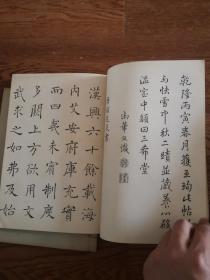 乾隆丙寅春月獲王珣此帖
与快雪中秋二蹟並藏養心殿
溫室中顏曰三希堂
御筆又識
漢興六十餘載海
內艾安府庫充實
而四夷未賓制度
多闕上方欲用文
武求之如弗及始